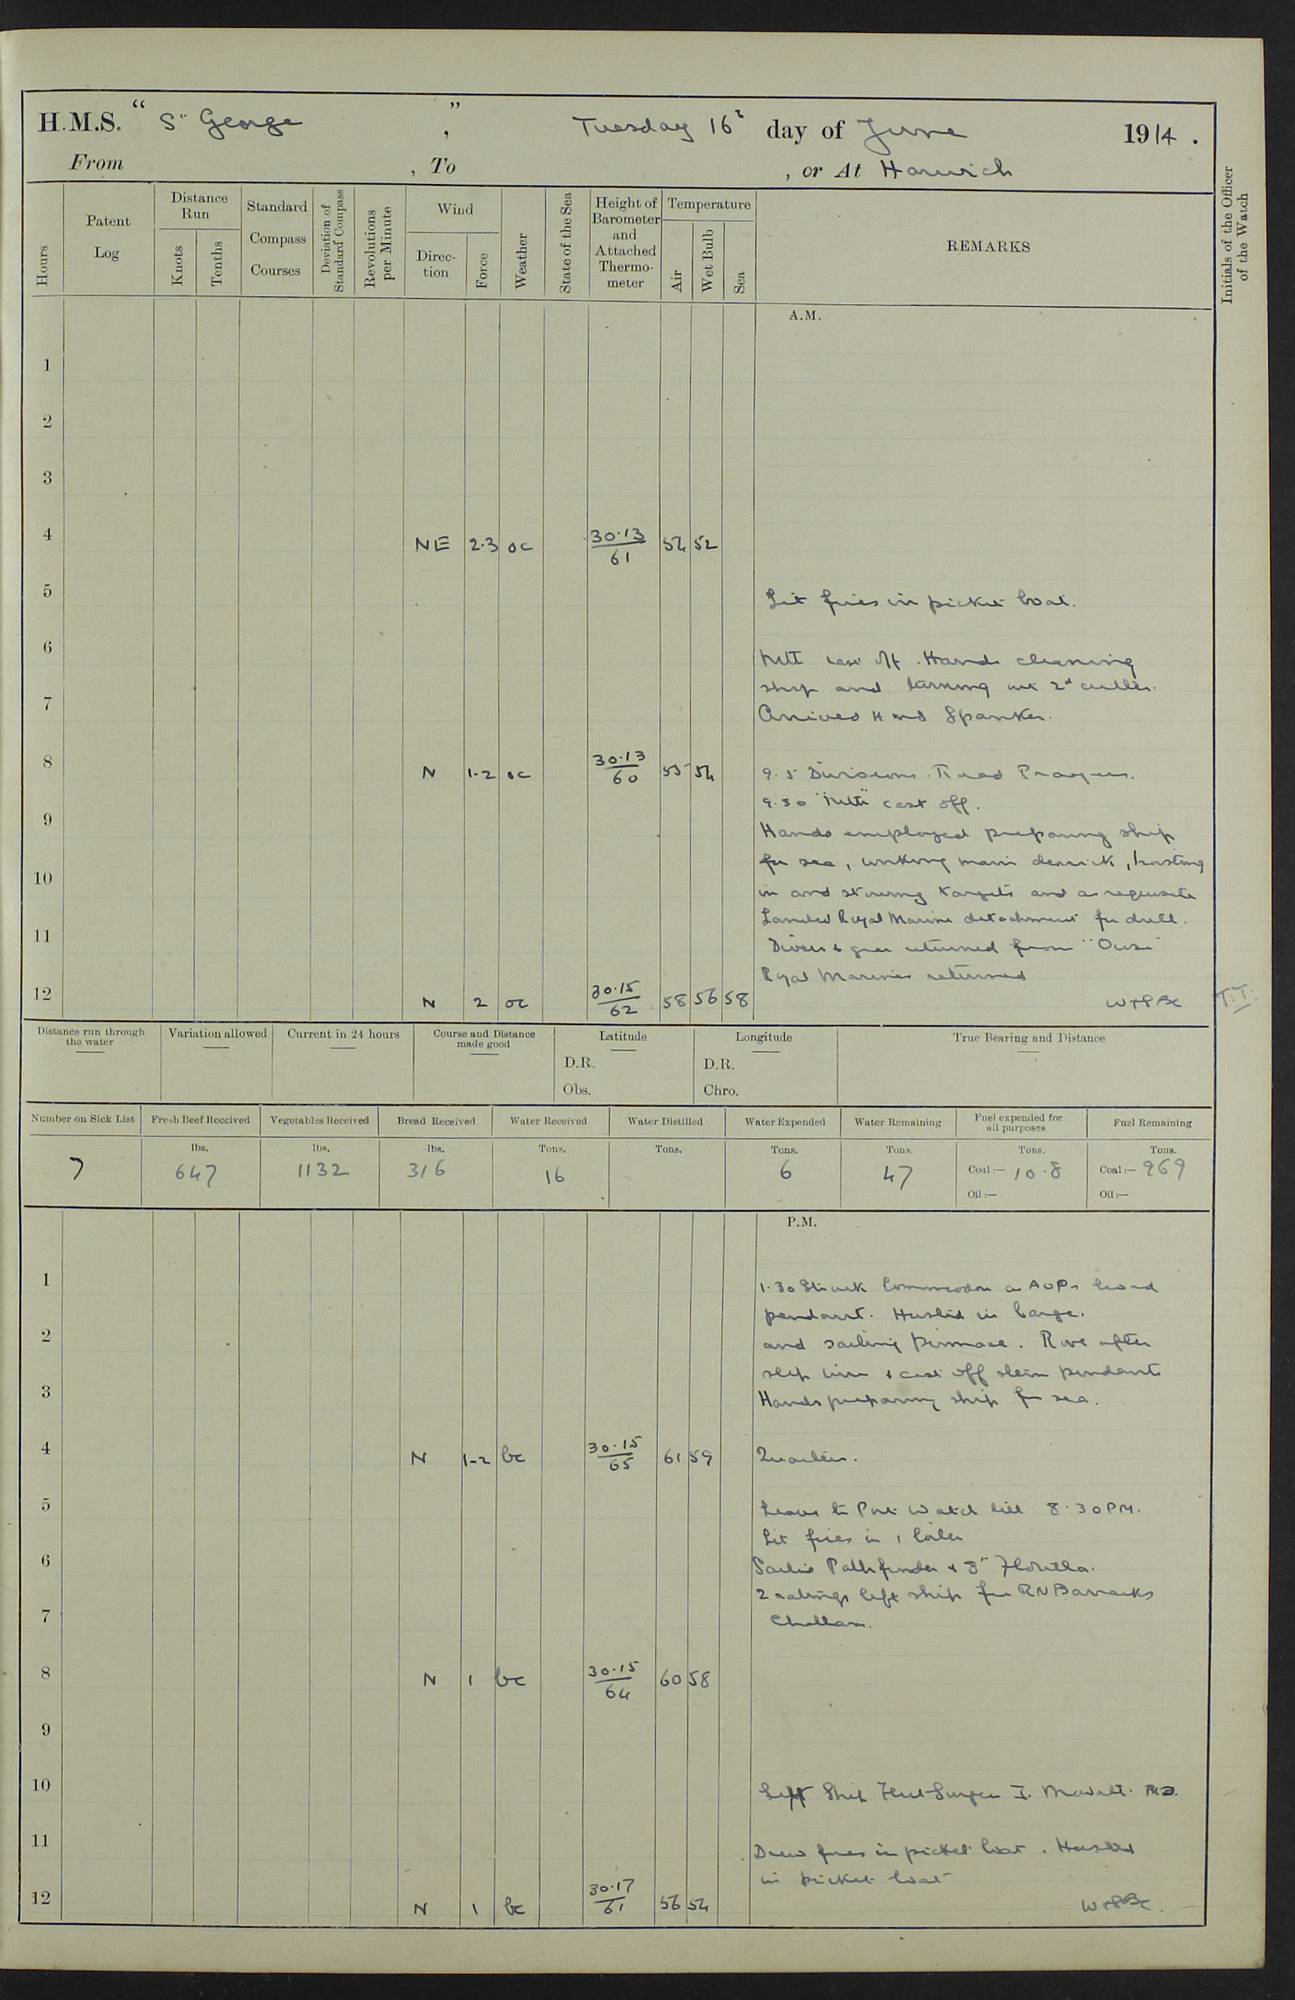 H.M.S. "St George", Tuesday 16th day of June 1914.
From , To , or At Harwich
Hours
Patent Log
Distance Run
Knots
Tenths
Standard Compass Courses
Deviation of Standard Compass
Revolutions per Minute
Wind
Direction
Force
Weather
State of the Sea
Height of Barometer and Attached Thermometer
Temperature
Air
Wet Bulb
Sea
REMARKS
Initials of the Officer of the Watch
A.M.
1
2
3
4 NE 2·3 oc 30·13/61 54 52
5 Lit fires in picket boat.
6 cast off. Hands cleaning
ship and 2d cutter.
7 Arrived H and Spanker.
8 N 1-2 oc 30·13/60 55 54 9.5 Divisions. Read Prayers.
9.30 cast off.
9 Hands employed preparing ship
for sea, working main derrick, hoisting
10 in and stowing targets and as requisite
Landed Royal Marine detachment for drill.
11 Divers & gear returned from "Ouse"
Royal Marines returned
12 N 2 oc 30·15/62 58 56 58
Distance run through the water
Variation allowed
Current in 24 hours
Course and Distance made good
Latitude
D.R.
Obs.
Longitude
D.R.
Chro.
True Bearing and Distance
Number on Sick List Fresh Beef Received Vegetables Received Bread Received Water Received Water Distilled Water Expended Water Remaining Fuel expended for all purposes Fuel Remaining
lbs. lbs. lbs. Tons. Tons. Tons. Tons. Tons. Tons.
7 647 1132 316 16 6 47 Coal:— 10·8 Coal:— 969
Oil:— Oil:—
P.M.
1 1.30 Struck Commodore broad
pendant. Hoisted in barge.
2 and sailing pinnace. Rove after
slip wire & cast off stern pendants
3 Hands preparing ship for sea.
4 N 1-2 bc 30·15/65 61 59 Quarters.
5 Leave to Port Watch till 8.30 PM.
Lit fires in 1 boiler
6 Sailed Pathfinder & 8th Flotilla.
2 ratings left ship for RN Barracks
7 Chatham.
8 N 1 bc 30·15/64 60 58
9
10 Left Ship Fleet Surgeon
11 Drew fires in picket boat. Hoisted
in picket boat
12 N 1 bc 30·17/61 56 54